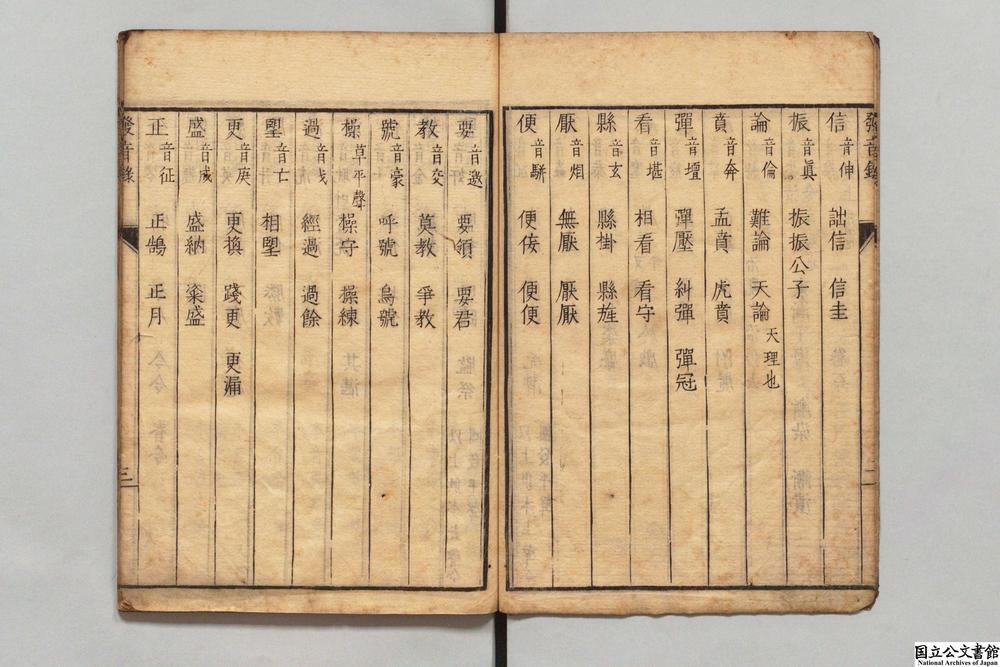 發音錄
信 音伸 詘信 信圭
振 音眞 振振公子
論 音倫 難論 天論 天理也
賁 音奔 孟賁 虎賁
彈 音壇 彈壓 糾彈 彈冠
看 音堪 相看 看守
縣 音玄 縣掛 縣旌
厭 音烟 無厭 厭厭
便 音駢 便佞 便便
二
要 音邀 要領 要君
教 音交 莫教 爭教
號 音豪 呼號 烏號
操 草平聲 操守 操練
過 音戈 經過 過餘
朢 音亡 相朢
更 音庚 更換 踐更 更漏
盛 音成 盛納 粢盛
正 音征 正鵠 正月
發音錄
三
国立公文書館
National Archives of Japan